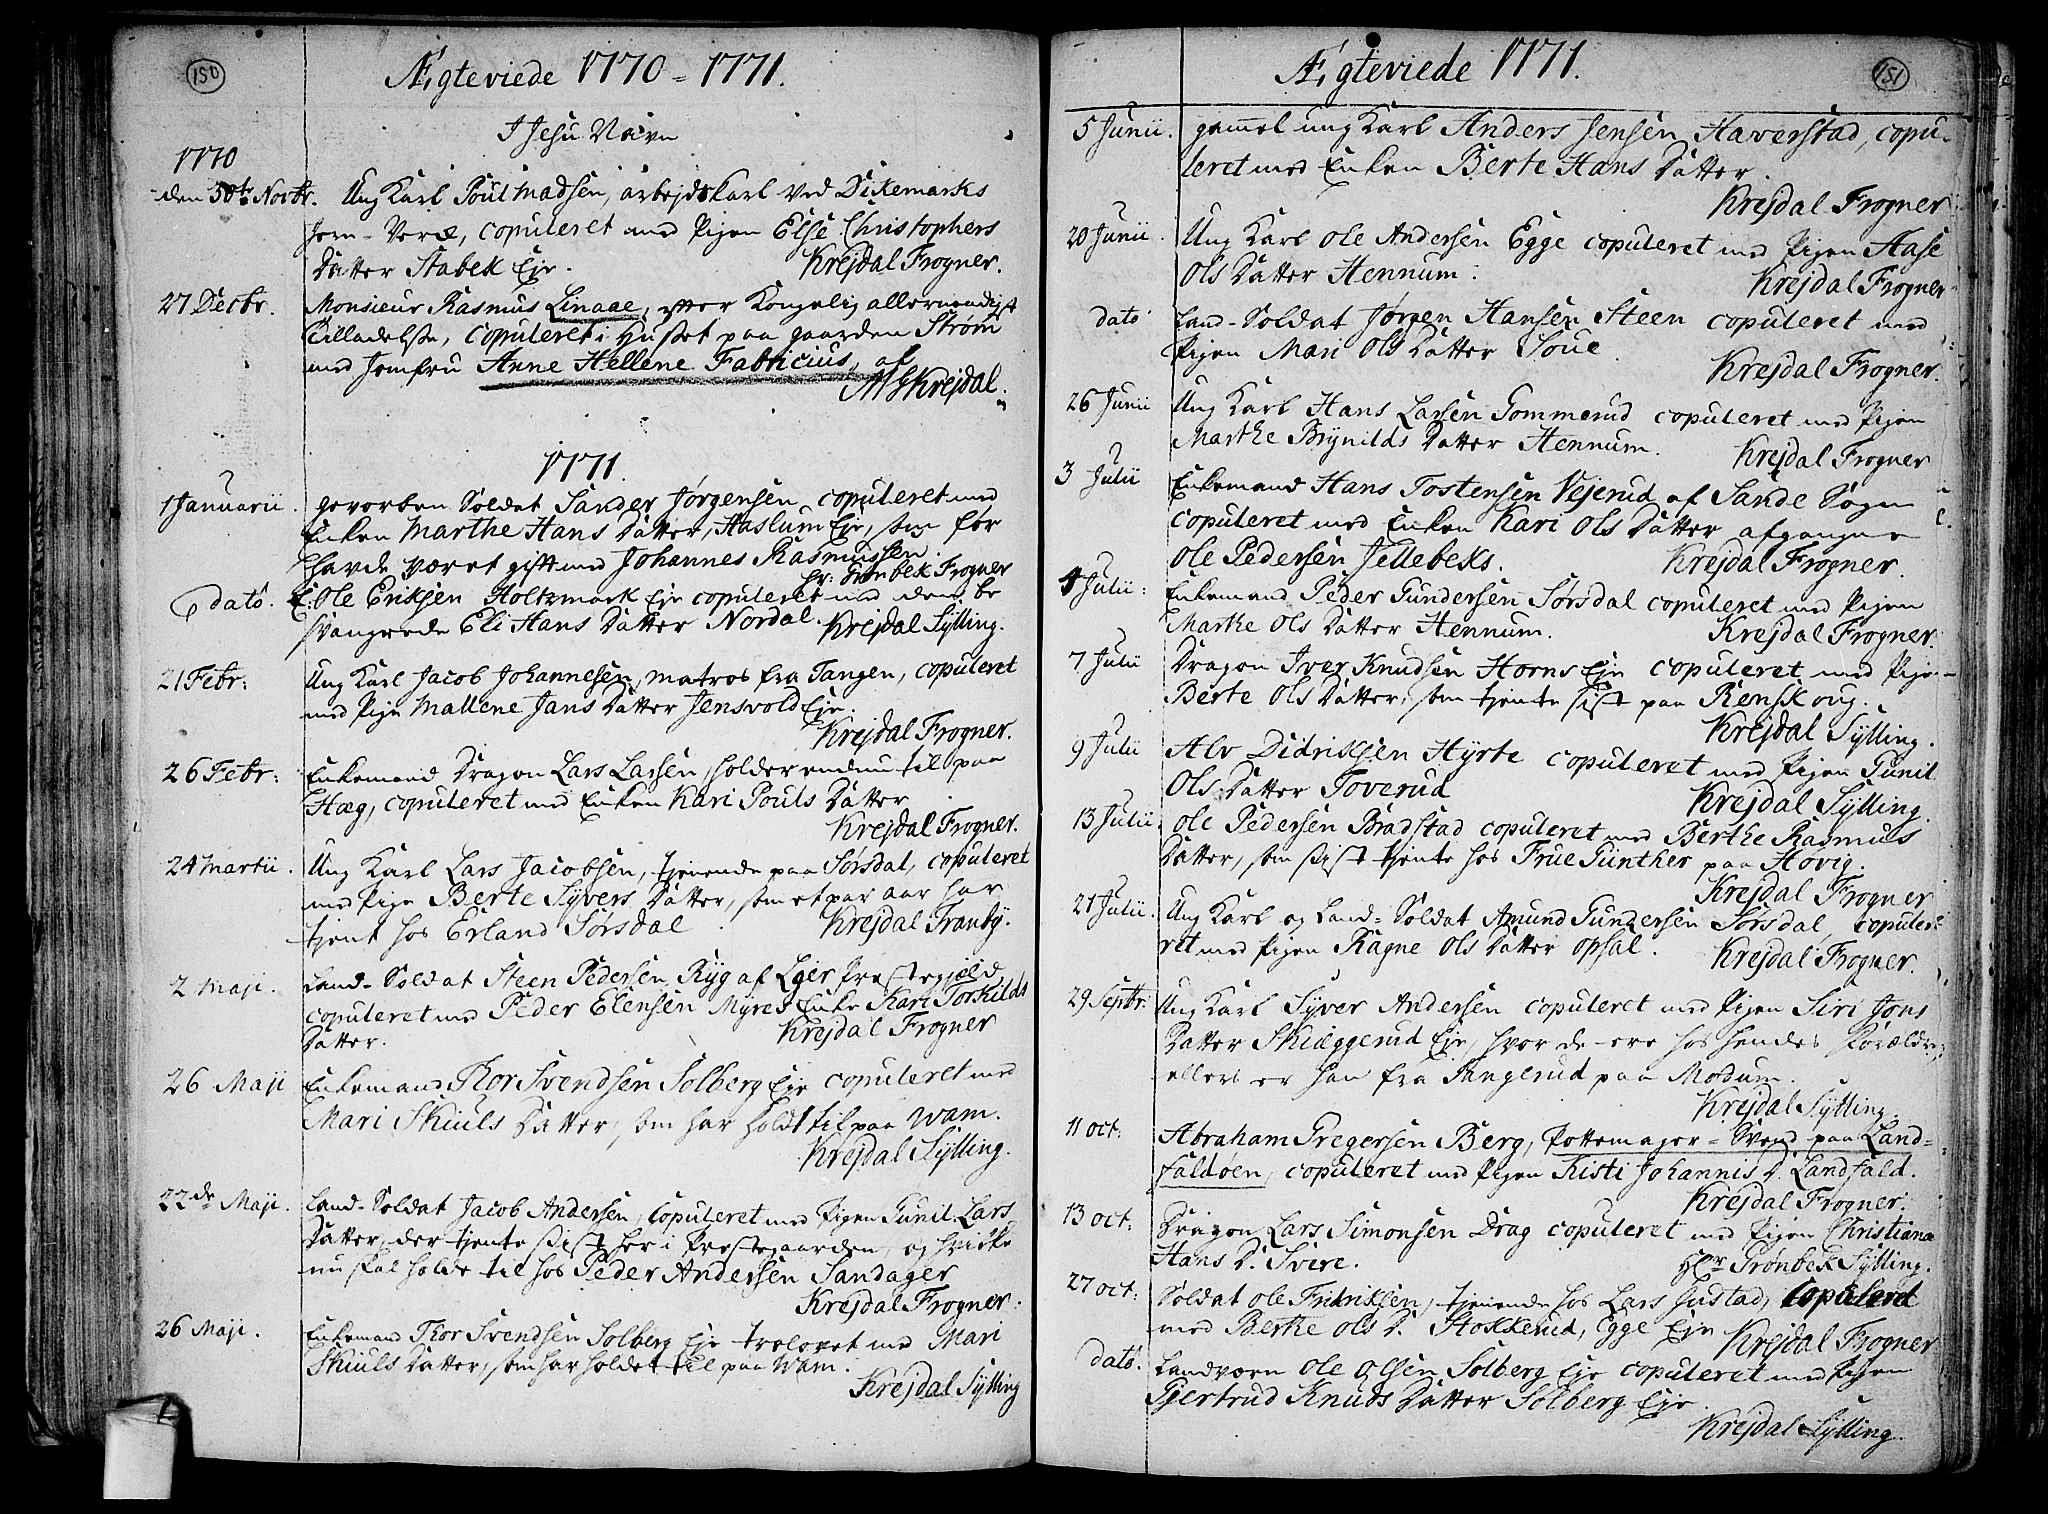 150
Ægteviede 1770 = 1771.
I Jesu Navn
1770
den 30te Novbr. Ung Karl Poul Madsen, arbejdskarl ved Dikemarks
Jern-Verk, copuleret med Pigen Else Christophers
Datter Stabek Eje.
Krejdal Frogner.
27 Decbr. Monsieur Rasmus Linaae, efter Kongelig allernaadigst
Tilladelse, copuleret i Huset paa gaarden Strøm
med Jomfru Anne Hellene Fabricius, af
Krejdal.
1771.
1 Januarii. gevorben Soldat Sander Jørgensen copuleret med
Enken Marthe Hans Datter, Haslum Eje, som før
havde været gift med Johannes Rasmussen.
Hr: Grønbek Frogner
dato. E: Ole Eriksen Holtzmark Eje copuleret med den be
svangrede Eli Hans Datter Nordal. Krejdal Sylling.
21 Febr: Ung Karl Jacob Johannesen, matros fra Tangen, copuleret
med Pige Mallene Jans Datter Jensvold Eje.
Krejdal Frogner.
26 Febr: Enkemand Dragon Lars Larsen, holder endnu til paa
Hæg, copuleret med Enken Kari Pouls Datter
Krejdal Frogner.
24 Martii. Ung Karl Lars Jacobsen, tjenende paa Sørsdal, copuleret
med Pige Berte Syvers Datter, som et par aar har
tjent hos Erland Sørsdal. Krejdal Tranby.
2 Maji. Land-Soldat Steen Pedersen Ryg af Eger Præstegjeld
copuleret med Peder Elensen Myres Enke Kari Torkilds
Datter. Krejdal Frogner
26 Maji Enkemand Thor Svendsen Solberg Eje copuleret med
Mari Skiuls Datter, som har holdt til paa Wam.
Krejdal Sylling.
22de Maji. Land-Soldat Jacob Andersen, copuleret med Pigen Gunil Lars
Datter, der tjente sist her i Præstegaarden, og hvilke
nu skal holde til hos Peder Andersen Sandager
Krejdal Frogner.
26 Maji. Enkemand Thor Svendsen Solberg Eje trolovet med Mari
Skiuls Datter, som har holdet til paa Wam.
Krejdal Sylling
151
Ægteviede 1771.
5 Junii. gamel ung Karl Anders Jensen Haverstad, copu-
leret med Enken Berte Hans Datter.
Krejdal Frogner
20 Junii. Ung Karl Ole Andersen Egge copuleret med Pigen Aase
Ols Datter Hennum.
Krejdal Frogner
dato Land-Soldat Jørgen Hansen Steen copuleret med
Pigen Mari Ols Datter Soue.
Krejdal Frogner.
26 Junii Ung Karl Hans Larsen Gommerud copuleret med Pigen
Marthe Brynilds Datter Hennum.
Krejdal Frogner
3 Julii Enkemand Hans Tostensen Vejerud af Sande Sogn
copuleret med Enken Kari Ols Datter afgangne
Ole Pedersen Jellebeks. Krejdal Frogner.
4 Julii: Enkemand Peder Gundersen Sørsdal copuleret med Pigen
Marthe Ols Datter Hennum. Krejdal Frogner.
7 Julii Dragon Iver Knudsen Horns Eje copuleret med Pigen
Berte Ols Datter, som tjente sist paa Renskoug.
Krejdal Sylling.
9 Julii Alv Didriksen Hyrte copuleret med Pigen Gunil
Ols Datter Toverud
Krejdal Sylling.
13 Julii. Ole Pedersen Bradstad copuleret med Berthe Rasmus
Datter, som sist tjente hos Frue Günther paa Høvig.
Krejdal Frogner
21 Julii. Ung Karl og Land-Soldat Amund Gundersen Sørsdal, copule-
ret med Pigen Ragne Ols Datter Opsal. Krejdal Frogner.
29 Septbr: Ung Karl Syver Andersen copuleret med Pigen Siri Jons
Datter Skiæggerud Eje, hvor de ere hos hendes Forældre,
ellers er han fra Tangerud paa Modum.
Krejdal Sylling.
11 Oct: Abraham Gregersen Berg, Pottemager-Svend paa Land-
faldøen, copuleret med Pigen Kisti Johannis D. Landfald.
Krejdal Frogner.
13 Oct. Dragon Lars Simonsen Drag copuleret med Pigen Christiana
Hans D. Svere. Hr Grønbek Sylling.
27 Oct: Soldat Ole Fridriksen, tjenende hos Lars Gustad, copuleret
med Berthe Ols D. Stokkerud, Egge Eje Krejdal Frogner
dato. Landværn Ole Olsen Solberg Eje copuleret med Pigen
Gjertrud Knuds Datter Solberg Eje.
Krejdal Sylling.